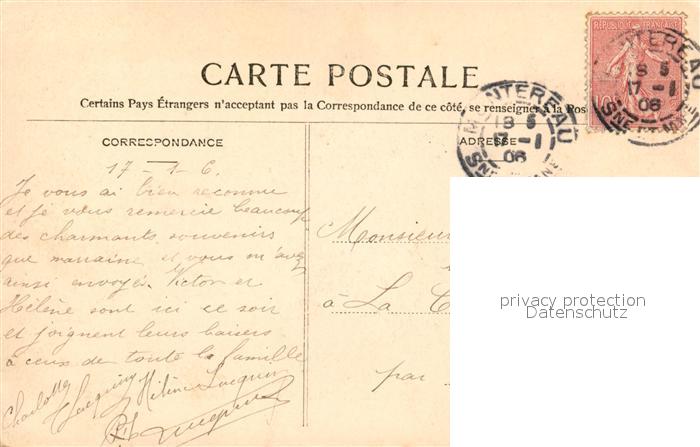 CARTE POSTALE
Certains Pays Étrangers n'acceptant pas la Correspondance de ce côté, se renseigner à la Pos
CORRESPONDANCE
ADRESSE
RÉPUBLIQUE FRANÇAISE
10
MONTEREAU
8 5
17 - 1
06
SNE ET MARNE
MONTEREAU
8 5
17 - 1
06
SNE ET MARNE
17 - 1 - 6.
Je vous ai bien reconnu
et je vous remercie beaucoup
des charmants souvenirs
que marraine et vous m'avez
ainsi envoyés. Victor et
Hélène sont ici ce soir
et joignent leurs baisers
à ceux de toute la famille
Charlotte
Hélène
Monsieur
à La
par
privacy protection
Datenschutz